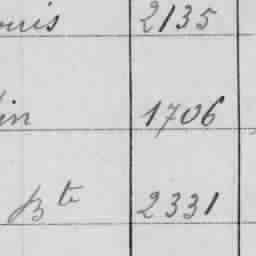 ouis 2135
in 1706
Bte 2331